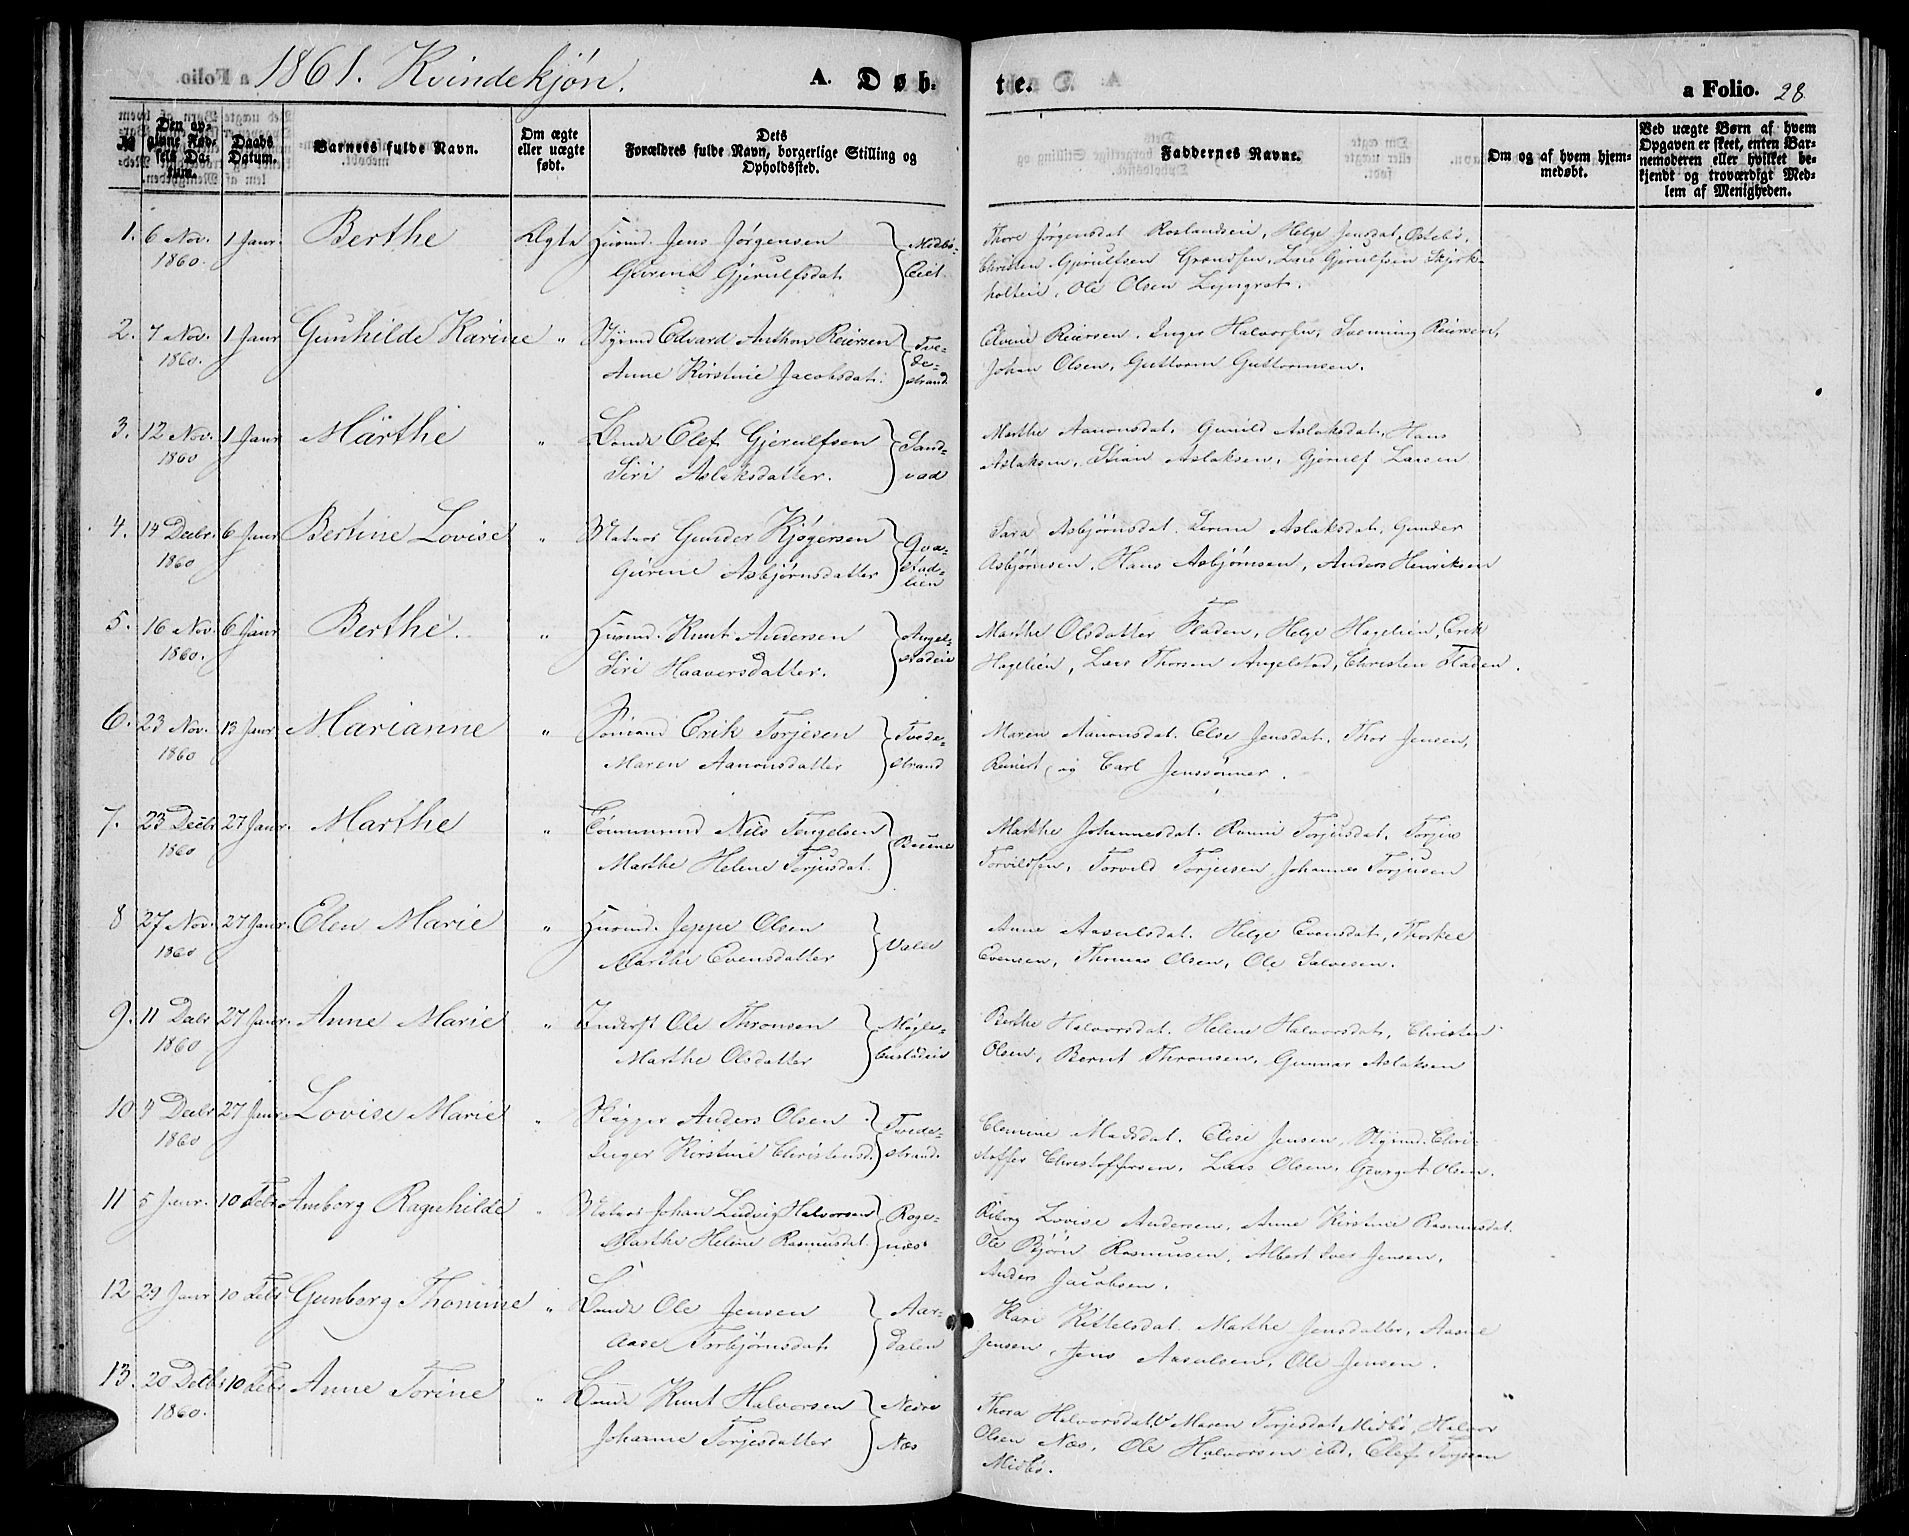 1861. Kvindekjøn.
A. Døb-
te.
a Folio. 28
№
Den op-
givne Fød-
sels Da-
tum.
Daabs
Datum.
Barnets fulde Navn.
Om ægte
eller uægte
født.
Dets
Forældres fulde Navn, borgerlige Stilling og
Opholdssted.
Faddernes Navne.
Om og af hvem hjem-
medøbt.
Ved uægte Børn af hvem
Opgaven er skeet, enten Bar-
nemoderen eller hvilket be-
kjendt og troværdigt Med-
lem af Menigheden.
1. 6 Nov. 1 Janr. Berthe Ægte Husmd. Jens Jörgensen
1860. Gurene Gjerulfsdat.
Thore Jørgensdat Roslandseie, Helge Jensdat, Östebö,
Christen Gjerulfsen, Lars Gjerulfsen
Ole Olsen
2. 7 Nov. 1 Janr Gunhilde Karine " Styrmd Edvard Anthon Reiersen Tve-
1860. Anne Kirstine Jacobsdat. de-
strand
Elvine Reiersen, Inger Halvorsen, Svenning Reiersen,
Johan Olsen, Guttorm Guttormsen.
3. 12 Nov. 1 Janr Marthe " Bonde Elef Gjerulfsen Sand-
1860 Siri Aslaksdatter. vad
Marthe Aanonsdat, Gunild Aslaksdat, Hans
Aslaksen, Stian Aslaksen, Gjerulf Larsen
4. 14 Decbr. 6 Janr Bertine Lovise " Matros Gunder Kjøgersen Qva-
1860 Gurene Asbjørnsdatter stad-
lien
Sara Asbjørnsdat. Serine Aslaksdat, Gunder
Asbjörnsen, Hans Asbjörnsen, Anders Henriksen
5. 16 Nov. 6 Janr Berthe. " Husmd. Knut Andersen Angel-
1860. Siri Haaversdatter. stadeie
Marthe Olsdatter Fladen, Helge Hagelien, Erik
Hagelien, Lars Thorsen Angelstad, Christen Fladen.
6. 23 Nov. 13 Janr. Marianne " Sömand Erik Torjesen Tvede-
1860 Maren Aanonsdatter strand
Maren Aanonsdat. Else Jensdat, Thor Jensen,
Reinert, og Carl Jenssönner.
7. 23 Decbr 27 Janr. Marthe " Tömmermd Nils Tengelsen
1860 Marthe Helene Torjusdat.
Marthe Johannesdat. Torjusdat, Torjus
Torvildsen, Torvild Torjusen, Johannes Torjusen
8 27 Nov. 27 Janr. Elen Marie " Husmd. Jeppe Olsen Valle
1860 Marthe Evensdatter
Anne Aasulsdat. Helge Evensdat, Thorkel
Evensen, Thomas Olsen, Ole Salvesen.
9. 11 Decbr 27 Janr. Anne Marie " Inderst Ole Thronsen Mögle-
1860 Marthe Olsdatter
Berthe Halvorsdat. Helene Halvorsdat, Christen
Olsen, Bernt Thronsen, Gunnar Aslaksen
10 9 Decbr 27 Janr Lovise Marie " Skipper Anders Olsen Tvede-
1860 Inger Kirstine Christensd. strand.
Clemene Madsdat. Elise Jensen, Styrmd. Chri-
stoffer Christoffersen, Lars Olsen, Georg A. Olsen.
11 5 Janr. 10 Febr Amborg Ragnhilde " Matros Johan Ludvig Halvorsen
Marthe Helene Rasmusdat næs
Lovise Andersen, Anne Kirstine Rasmusdat.
Ole Bjørn Rasmusen, Albert Iver Jensen,
Anders Jacobsen.
12 29 Janr 10 Febr Gunborg Thomine " Bonde Ole Jensen Aar-
Aase Torbjørnsdat dalen
Kari Kittelsdat. Marthe Jensdatter, Aasne
Jensen, Jens Aasulsen, Ole Jensen.
13. 20 Decbr 10 Febr Anne Torine " Bonde Knut Halvorsen Nedre
1860. Johanne Torjesdatter Næs
Thora Halvorsdatt. Maren Torjesdat, Midbö, Halvor
Olsen Næs, Ole Halvorsen ibd, Elef Torjesen
Midbö.